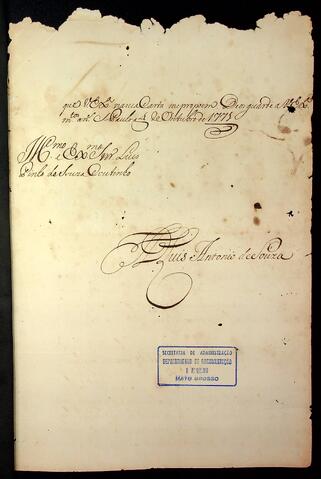 que V Ex.ª na sua Carta me propoem. Deos guarde a V Ex.ª
m.tos an.s S. Paulo 4 de Outubro de 1775
Ill.mo e Ex.mo Snr' Luis
Pinto de Souza Coutinho
D. Luis Antonio de Souza
SECRETARIA DE ADMINISTRAÇÃO
DEPARTAMENTO DE DOCUMENTAÇÃO
E ARQUIVO
MATO GROSSO